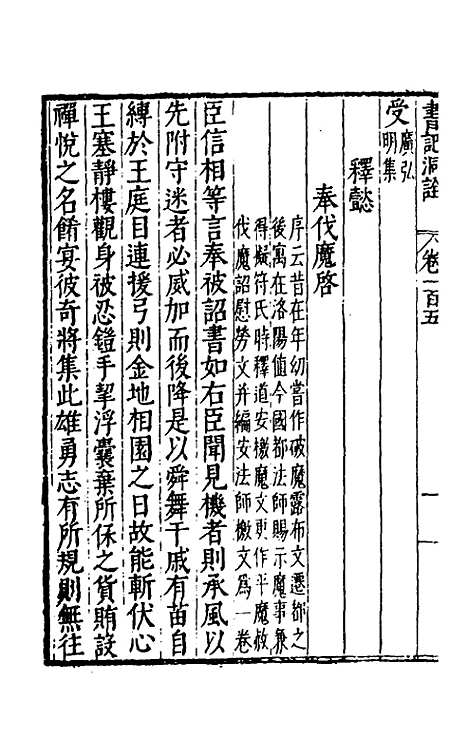 書記洞詮　卷一百五　一
受廣弘明集
釋懿
奉伐魔啓
序云昔在年幼嘗作破魔露布文遷都之
後寓在洛陽值今國都法師賜示魔事兼
得擬符氏時釋道安檄魔文更作平魔赦
伐魔詔慰勞文并編安法師檄文為一卷
臣信相等言奉被詔書如右臣聞見機者則承風以
先附守迷者必威加而後降是以舜舞干戚有苗自
縛於王庭目連援弓則金地相園之日故能斬伏心
王塞靜樓觀身被忍鎧手挈浮囊棄所保之貨賄設
禪悅之名餚宴彼奇將集此雄勇志有所規則無往